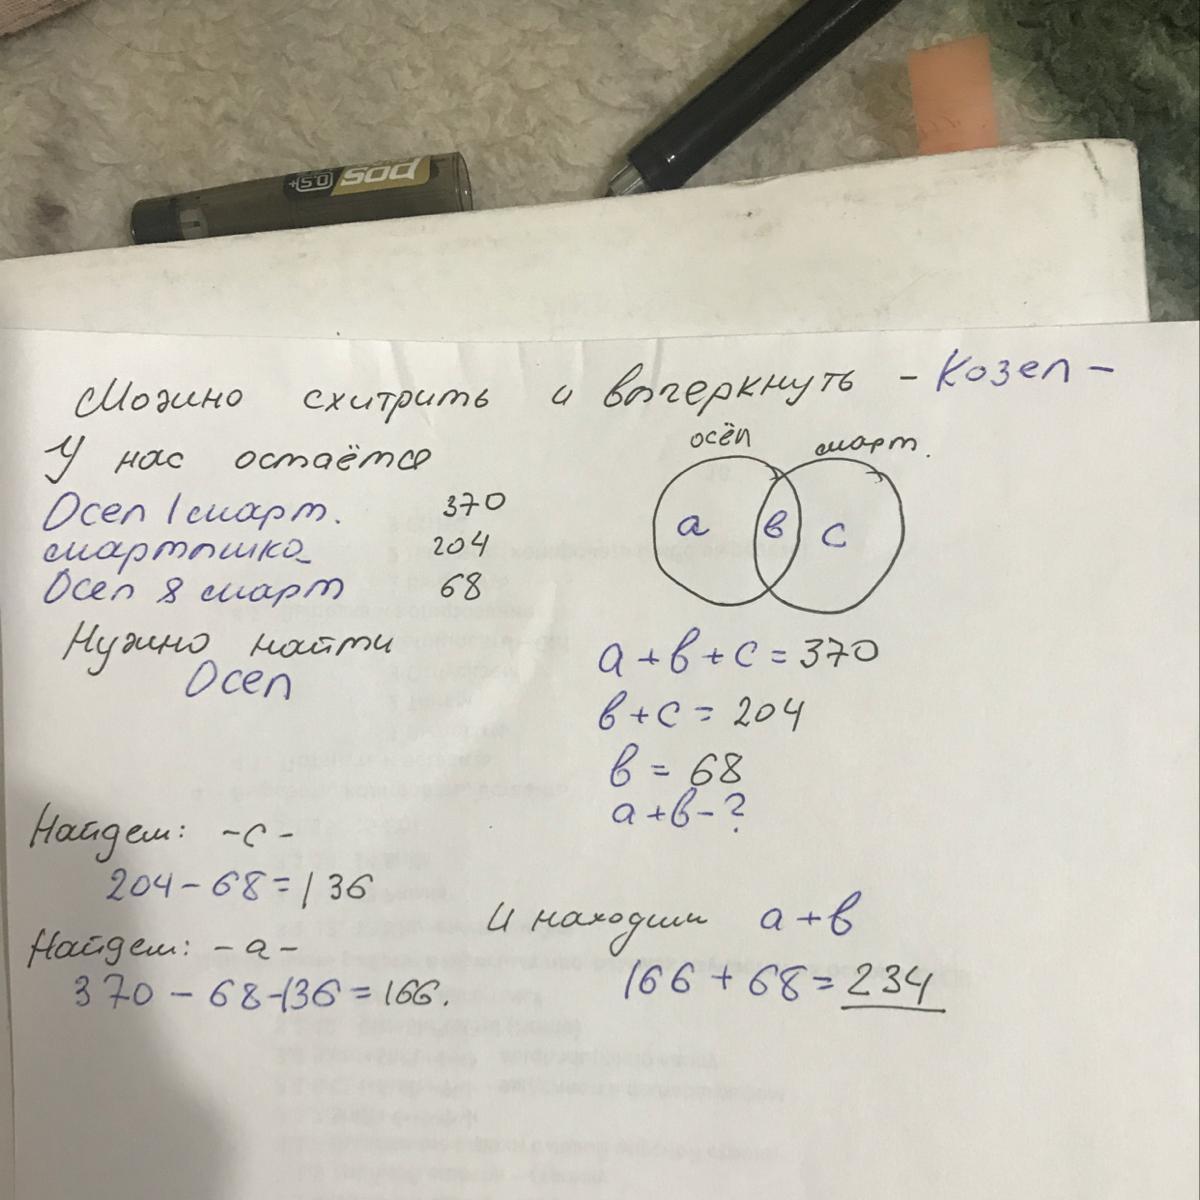 POP 0.5+
Можно схитрить и вычеркнуть - Козел -
У нас остаётся
осёл смарт.
Осел / смарт. 370
мартышка 204
Осел & смарт 68
a в c
Нужно найти
Осел
a + в + c = 370
в + c = 204
в = 68
a + в - ?
Найдем: - c -
204 - 68 = 136
И находим a + в
Найдем: - a -
370 - 68 - 136 = 166.
166 + 68 = 234